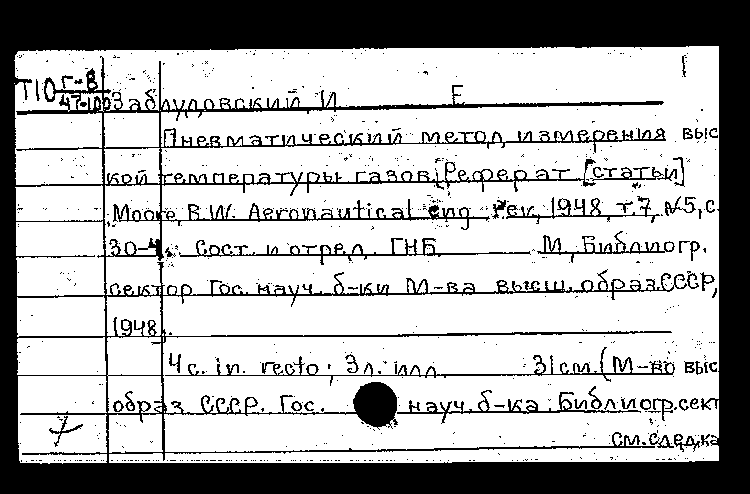 Т10 Г-8
47-100 Заблудовский, И Е
Пневматический метод измерения выс
кой температуры газов. Реферат [статьи]
Moore, R.W. Aeronautical eng rev, 1948, т.7, №5, с.
30-4 . Сост. и отред. ГНБ. М, Библиогр.
сектор Гос. науч. б-ки М-ва высш. образ.СССР,
1948.
4 с. in. recto; 3 л. илл. 31 см. (М-во выс
образ. СССР. Гос. науч. б-ка. Библиогр.сект
7 см.след.ка